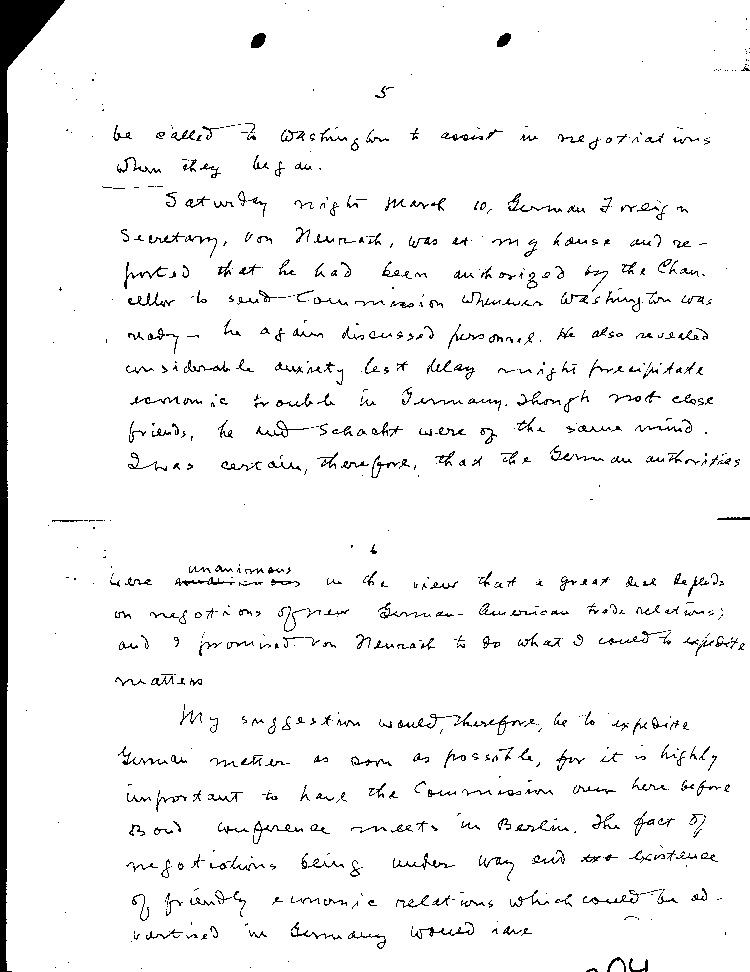 5
be called to Washington to assist in negotiations
when they began.
Saturday night March 10, German Foreign
Secretary, von Neurath, was at my house and re-
ported that he had been authorized by the Chan-
cellor to send Commission whenever Washington was
ready — he again discussed personnel. He also revealed
considerable anxiety lest delay might precipitate
economic trouble in Germany. Though not close
friends, he and Schacht were of the same mind.
I was certain, therefore, that the German authorities
6
unanimous
were in the view that a great deal depends
on negotions of new German-American trade relations;
and I promised von Neurath to do what I could to expedite
matters
My suggestion would, therefore, be to expedite
German matter as soon as possible, for it is highly
important to have the Commission over here before
Bond conference meets in Berlin. The fact of
negotiations being under way and existence
of friendly economic relations which could be ad-
vertised in Germany would
204